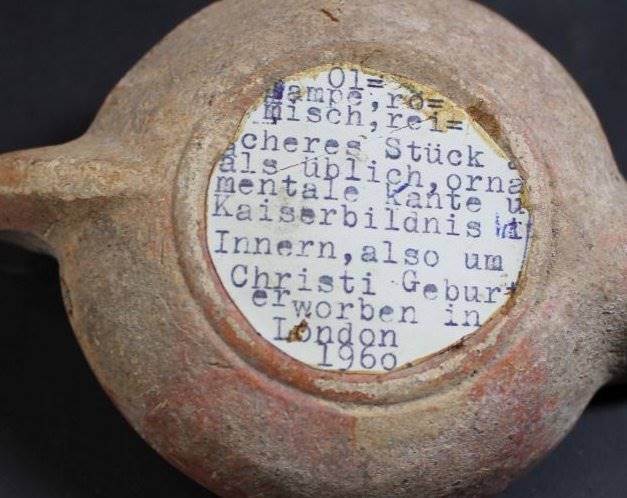 Öl=
lampe, rö=
misch, rei=
cheres Stück
als üblich, orna
mentale Kante u
Kaiserbildnis
Innern, also um
Christi Geburt
erworben in
London
1960